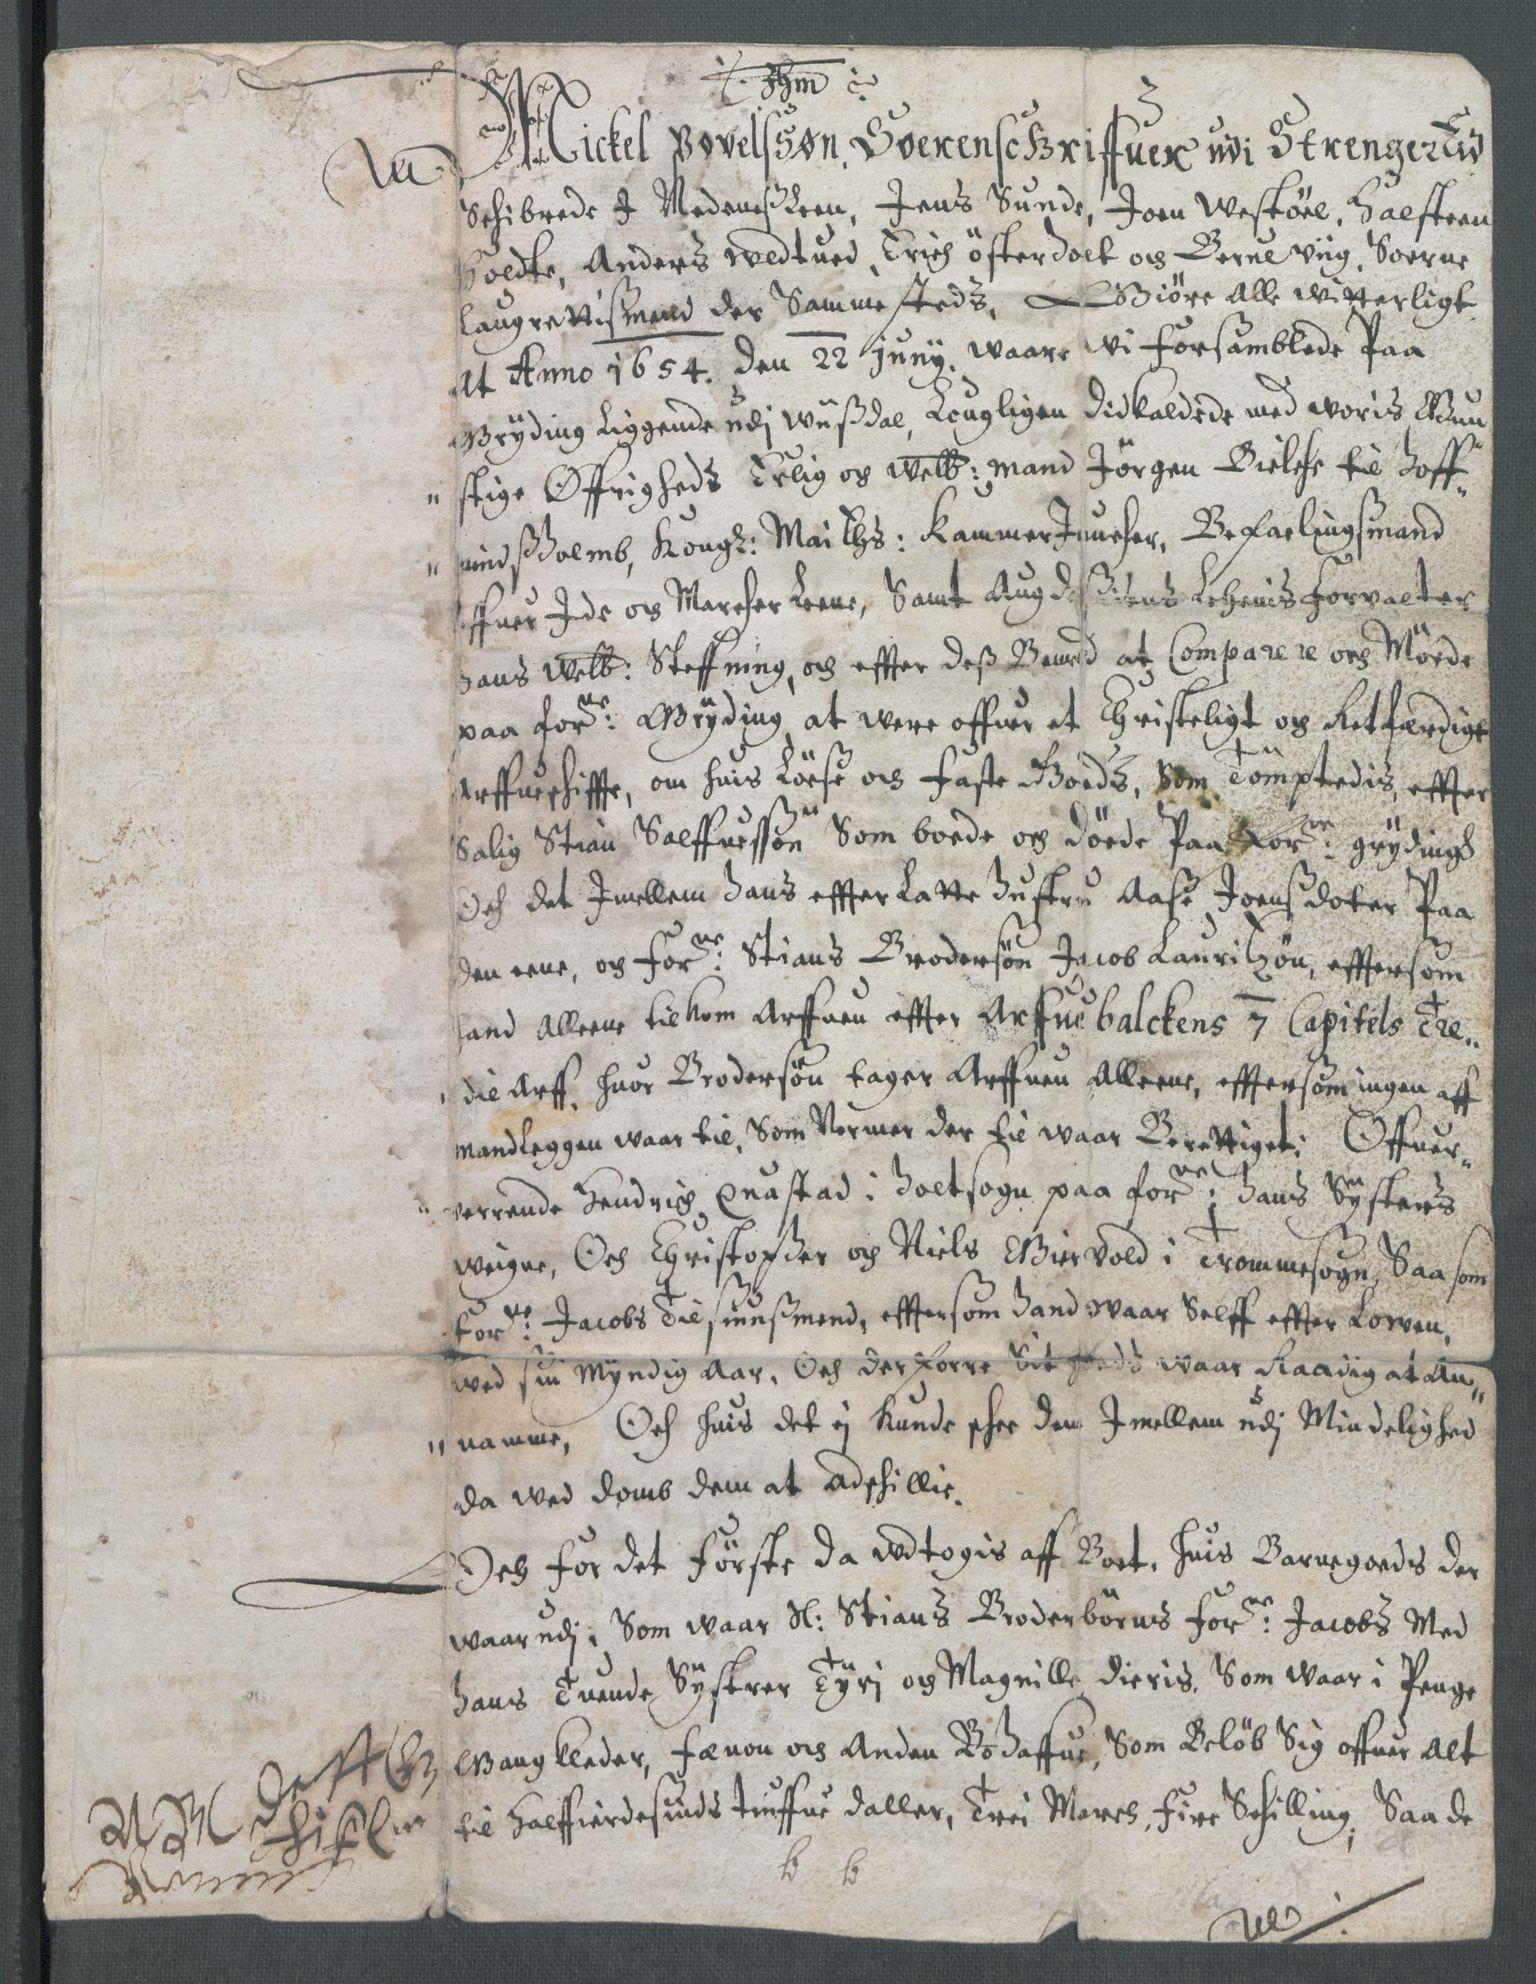 Jhm
Mickel Povelssøn, Soerenschriffuer udi Strengereid
Schibrede I Nedenesleen, Jens Sunde, Joen Westöel, Halsteen
Holdte, Anders wedtued, Erich österholt och Berul Viig, Soerne
Laugrettismend der Samme steds, Giöre Alle witterligt
At Anno 1654. den 22 Junij, waare wi forsamblede Paa
Grÿding Liggende udj , Lougligen didkaldede med woris Gun
stige Öffrigheds Erlig och Welb: mand Jörgen Bielche til Hoff
vindsholmb, Kongl: Maiths: KammerJuncher, Befaelingsmand
offuer Ide och Marcher Leene, Samt Augdesidens Lehens Forvalter
hans Welb: Steffning, och effter deß Bemed at Comparere och Möede
paa forne: Grÿding at were offuer et Christeligt och Retferdigt
Arffueschiffte, om huis Löese och Faste Goeds, Som Tömptedis, effter
Salig Stian Salffuessön Som boede och döede Paa Forne: grÿdingh
Och det Imellem hans effterlatte hustru Aase Joensdoter Paa
den eene, och Forne: Stians Brodersön Jacob Lauritzön, efftersom
hand Alleene tilkom Arffuen effter Arfuebalckens 7 Capitels Tre
die Arff, huor Brodersön tager Arffuen Alleene, efftersom ingen aff
mandleggen waar til, Som Nermer der til waar Berettiget; Offuer
werrende Hendrich Quastad i Holtsogn paa forne: hans Sÿsters
weigne, Och Christopher och Niels Giervold i Trommesogn, Saa som
forne: Jacobs Tilsiunsmend, efftersom hand waar Selff effter Lowen,
wed sin Myndig Aar, Och derforre Sit waar Raadig at An
namme, Och huis det ej kunde schee dem Imellem udj Mindelighed
da wed domb dem at adschillie.
Och for det Förste da udtogis aff Boet, huis Barnegoeds der
waar udj, Som waar Sl: Stians Broderbörns forne: Jacobs Med
hans Tuende Sÿstrer Tÿrj och Magnille dieris, Som waar i Penge
Gangkleder, Fænon och Anden Bohaffue, Som Belöb Sig offuer Alt
til halffierdesinds tiuffue daller, Trei March, Fire Schilling; Saa de